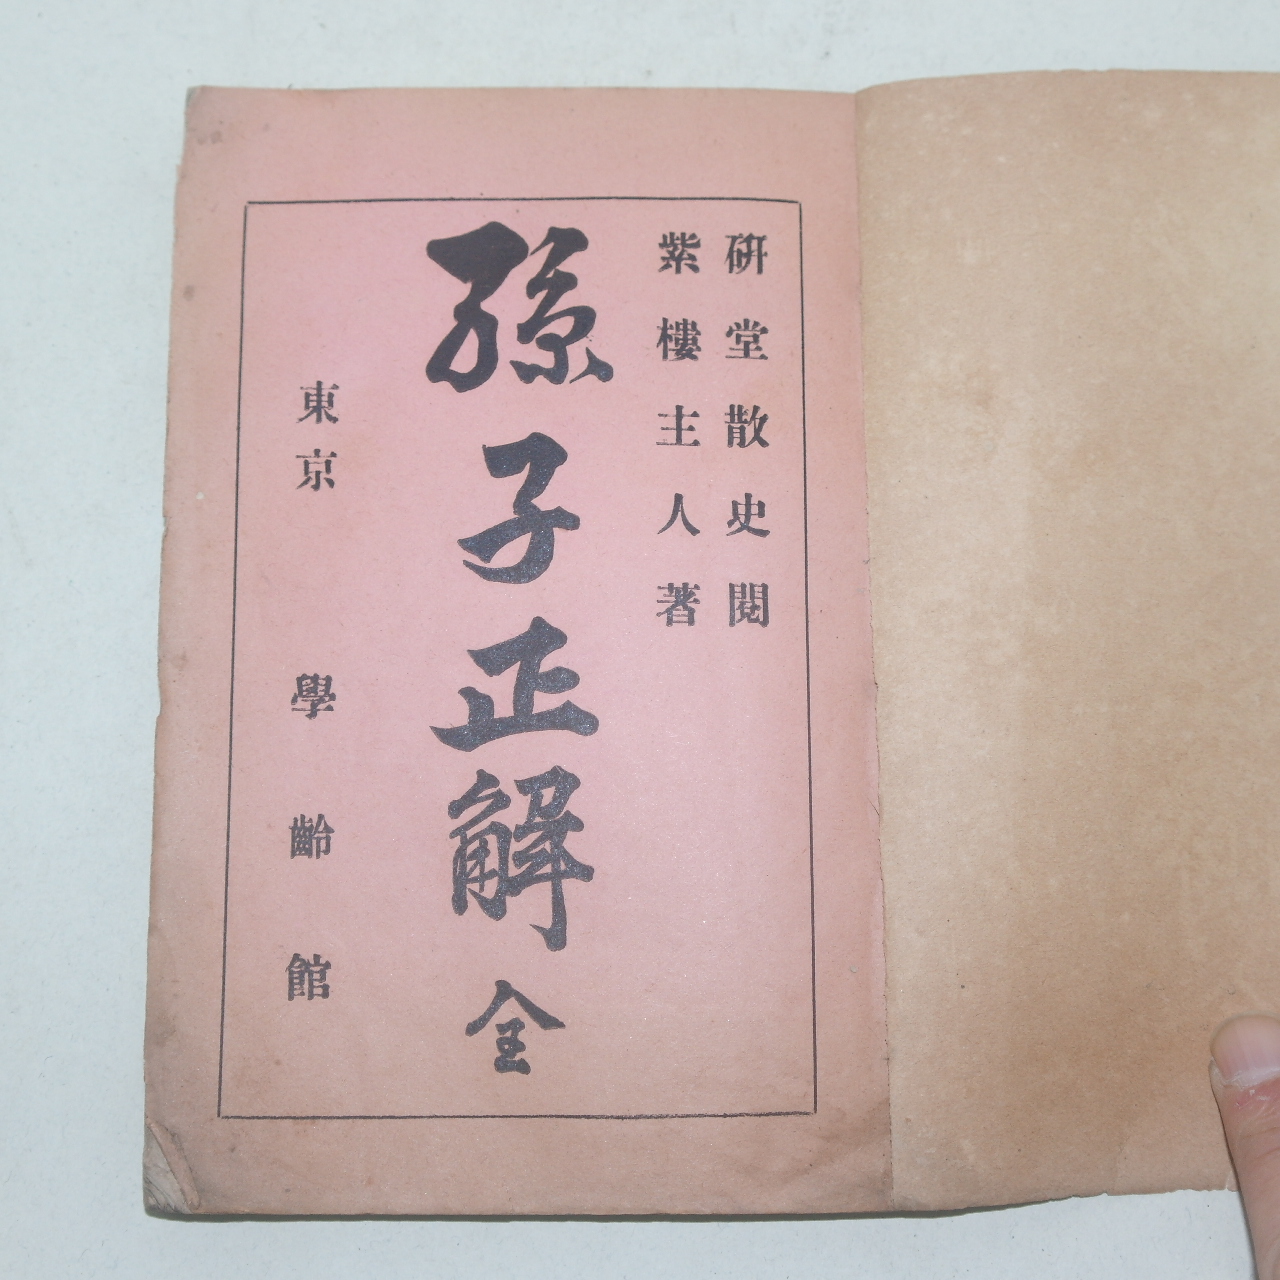 硏堂散史閱
紫樓主人著
孫子正解 全
東京 學齡館